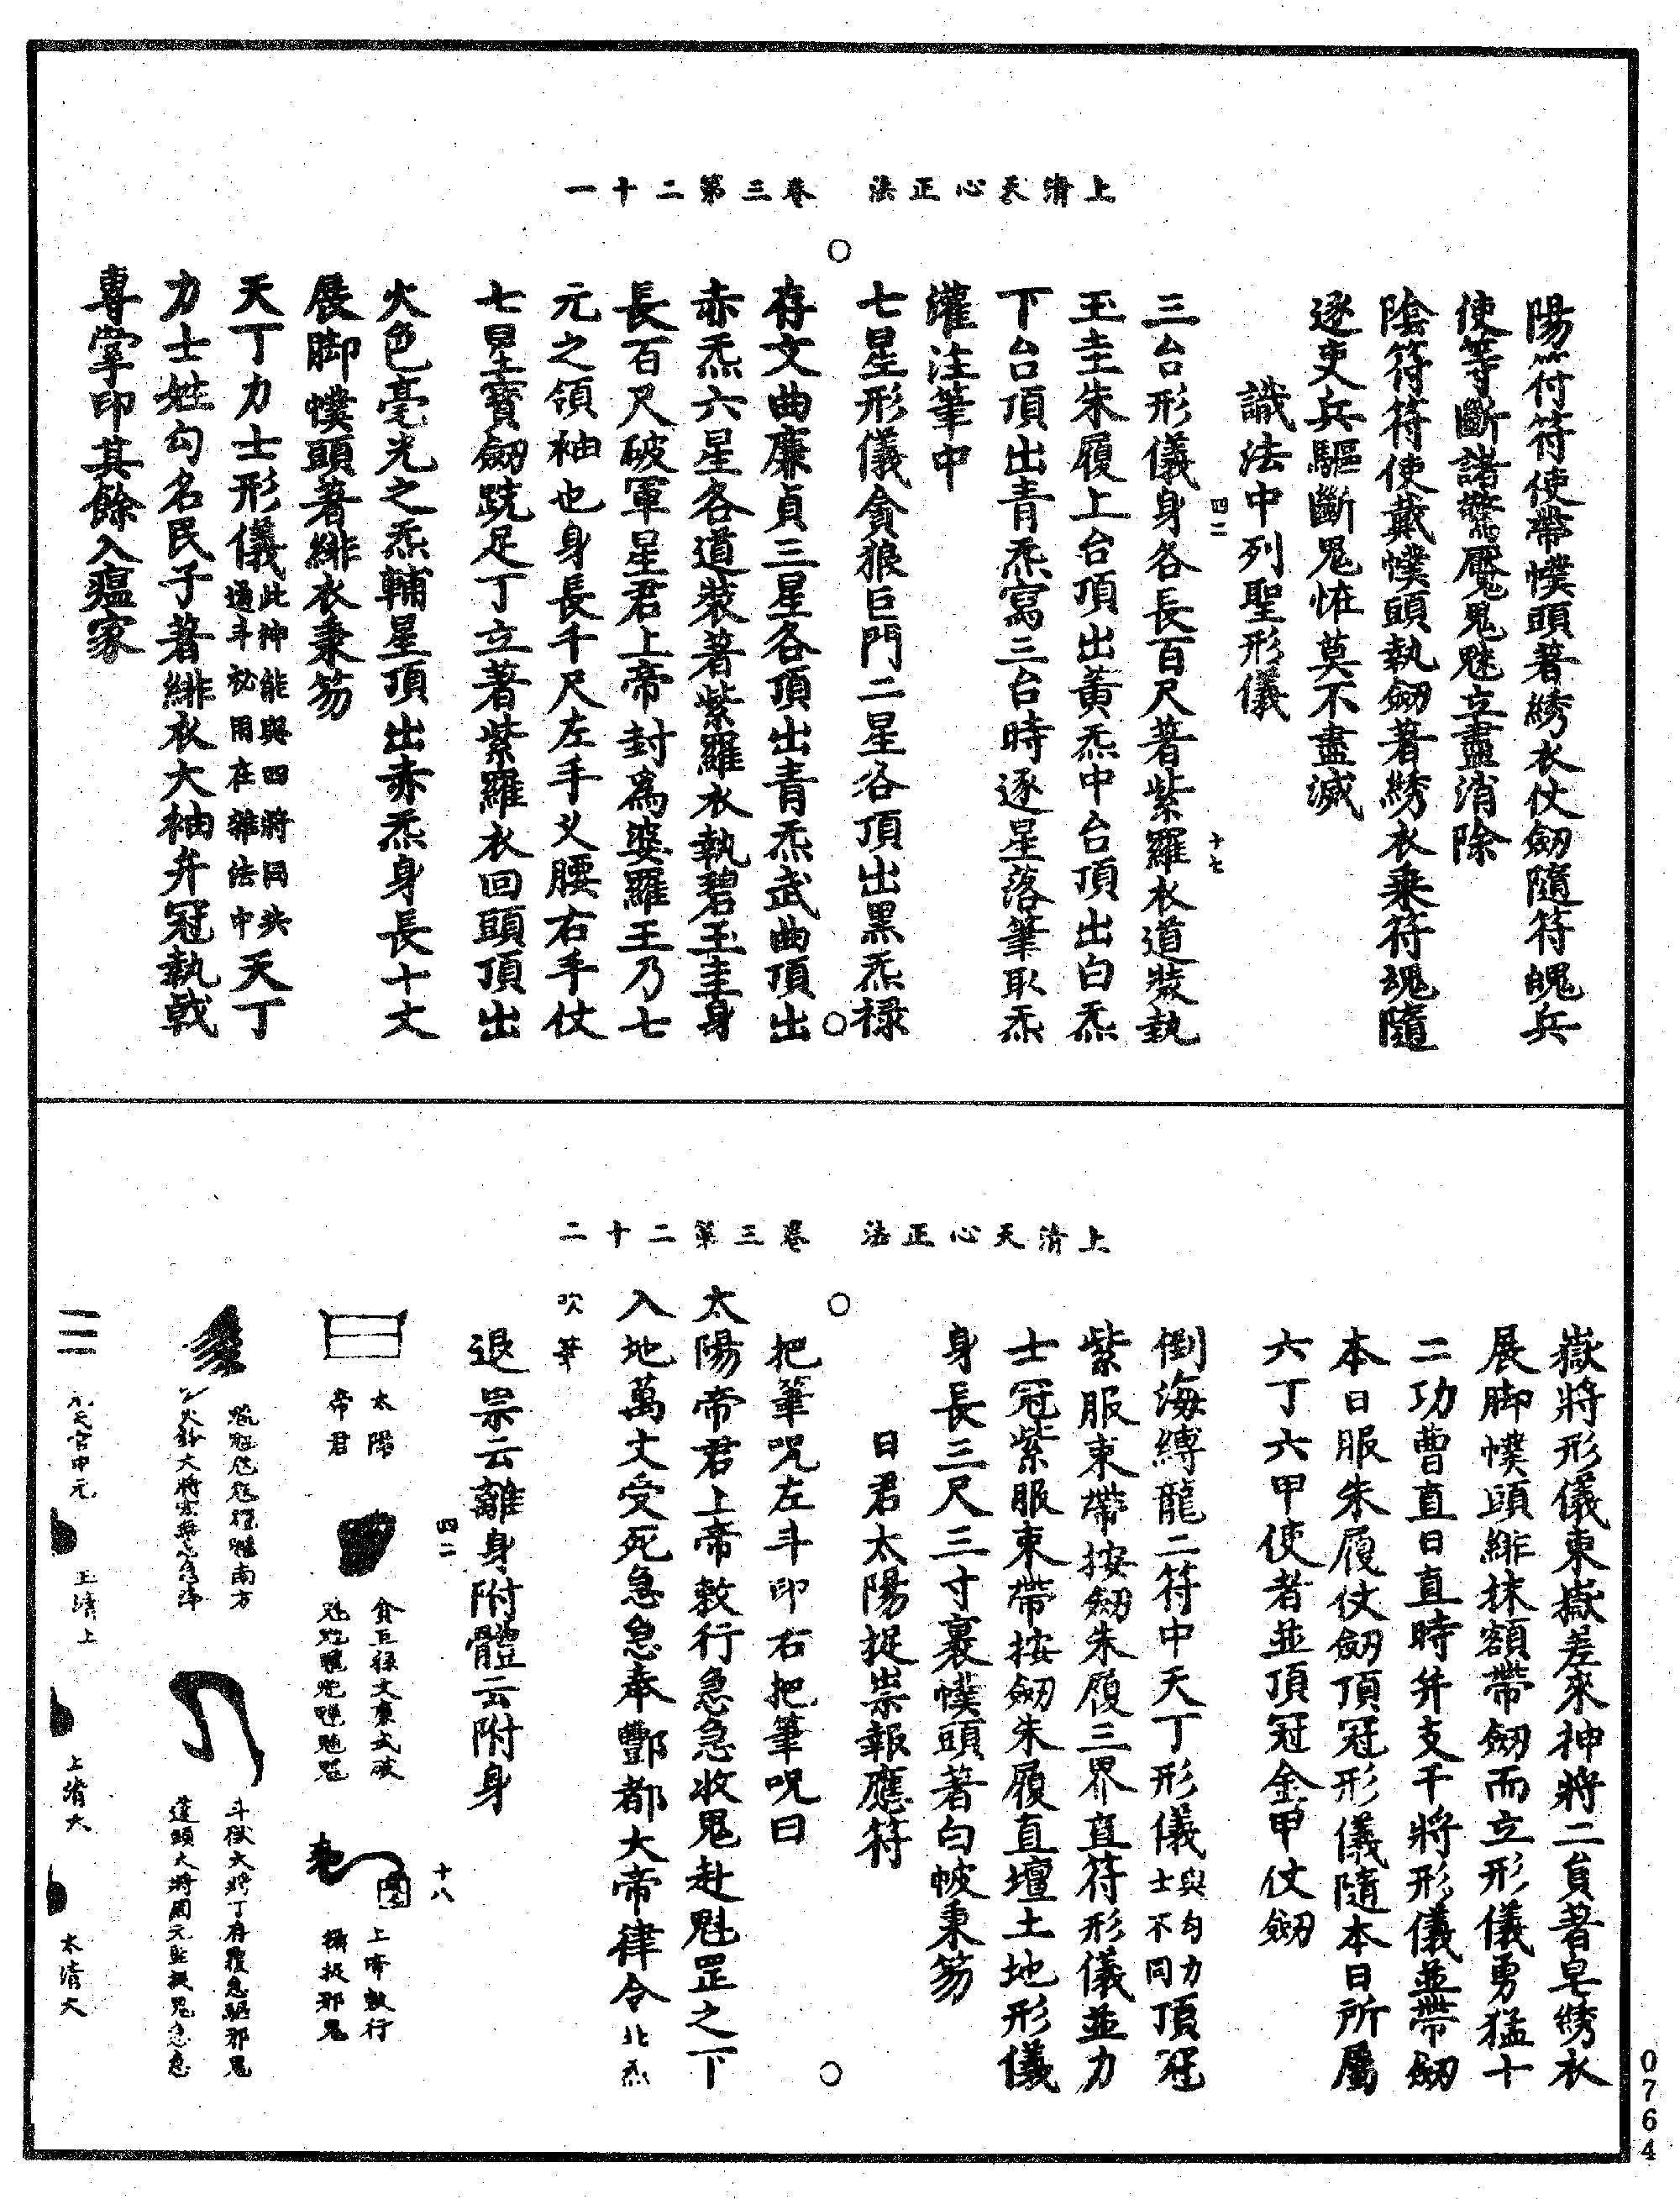 上清天心正法　卷三第二十一
陽符符使帶幞頭著綉衣仗劒隨符魄兵
使等斷諸驚魘鬼魅立盡消除
陰符符使戴幞頭執劒著綉衣乗符魂隨
逐吏兵驅斷鬼恠莫不盡滅
識法中列聖形儀
四二　十七
三台形儀身各長百尺著紫羅衣道裝執
玉圭朱履上台頂出黃炁中台頂出白炁
下台頂出青炁寫三台時逐星落筆取炁
灌注筆中
七星形儀貪狼巨門二星各頂出黑炁禄
存文曲廉貞三星各頂出青炁武曲頂出
赤炁六星各道裝著紫羅衣執碧玉圭身
長百尺破軍星君上帝封爲婆羅王乃七
元之領袖也身長千尺左手义腰右手仗
七星寶劒跣足丁立著紫羅衣回頭頂出
火色毫光之炁輔星頂出赤炁身長十丈
展脚幞頭著緋衣秉笏
天丁力士形儀此神能與四將同共通斗祕用在雜法中天丁
力士姓勾名民子著緋衣大袖弁冠執戟
專掌印其餘入瘟家
上清天心正法　卷三第二十二
嶽將形儀東嶽差來神將二員著皂綉衣
展脚幞頭緋抹額帶劒而立形儀勇猛十
二功曹直日直時并支干將形儀並帶劒
本日服朱履仗劒頂冠形儀隨本日所屬
六丁六甲使者並頂冠金甲仗劒
倒海縛龍二符中天丁形儀與勾力士不同頂冠
紫服束帶按劒朱履三界直符形儀並力
士冠紫服束帶按劒朱履直壇土地形儀
身長三尺三寸裹幞頭著白帔秉笏
日君太陽捉祟報應符
把筆呪左斗印右把筆呪曰
太陽帝君上帝敕行急急收鬼赴魁罡之下
入地萬丈受死急急奉酆都大帝律令北炁
吹筆
退祟云離身附體云附身
四二　十八
太陽帝君
貪巨禄文廉武破
上帝敕行
攝捉邪鬼
南方
斗獄大將丁存覆急驅邪鬼
蓬頭大將周元監捉鬼急急
玉清上
上清大
太清大
0764